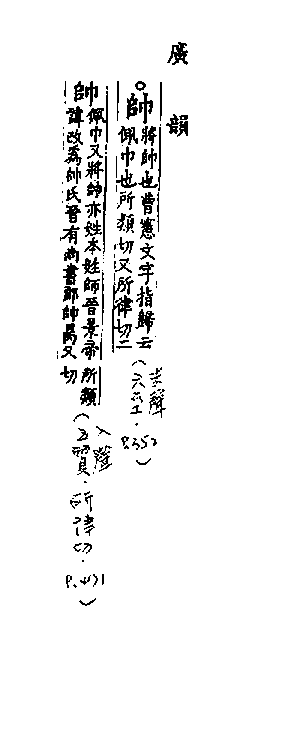 廣韻
○帥將帥也曹憲文字指歸云佩巾也所類切又所律切二(去聲·六至·P.352)
帥佩巾又將帥亦姓本姓師晉景帝諱改為帥氏晉有尚書郎帥昺又所類切(入聲·五質·所律切·P.471)